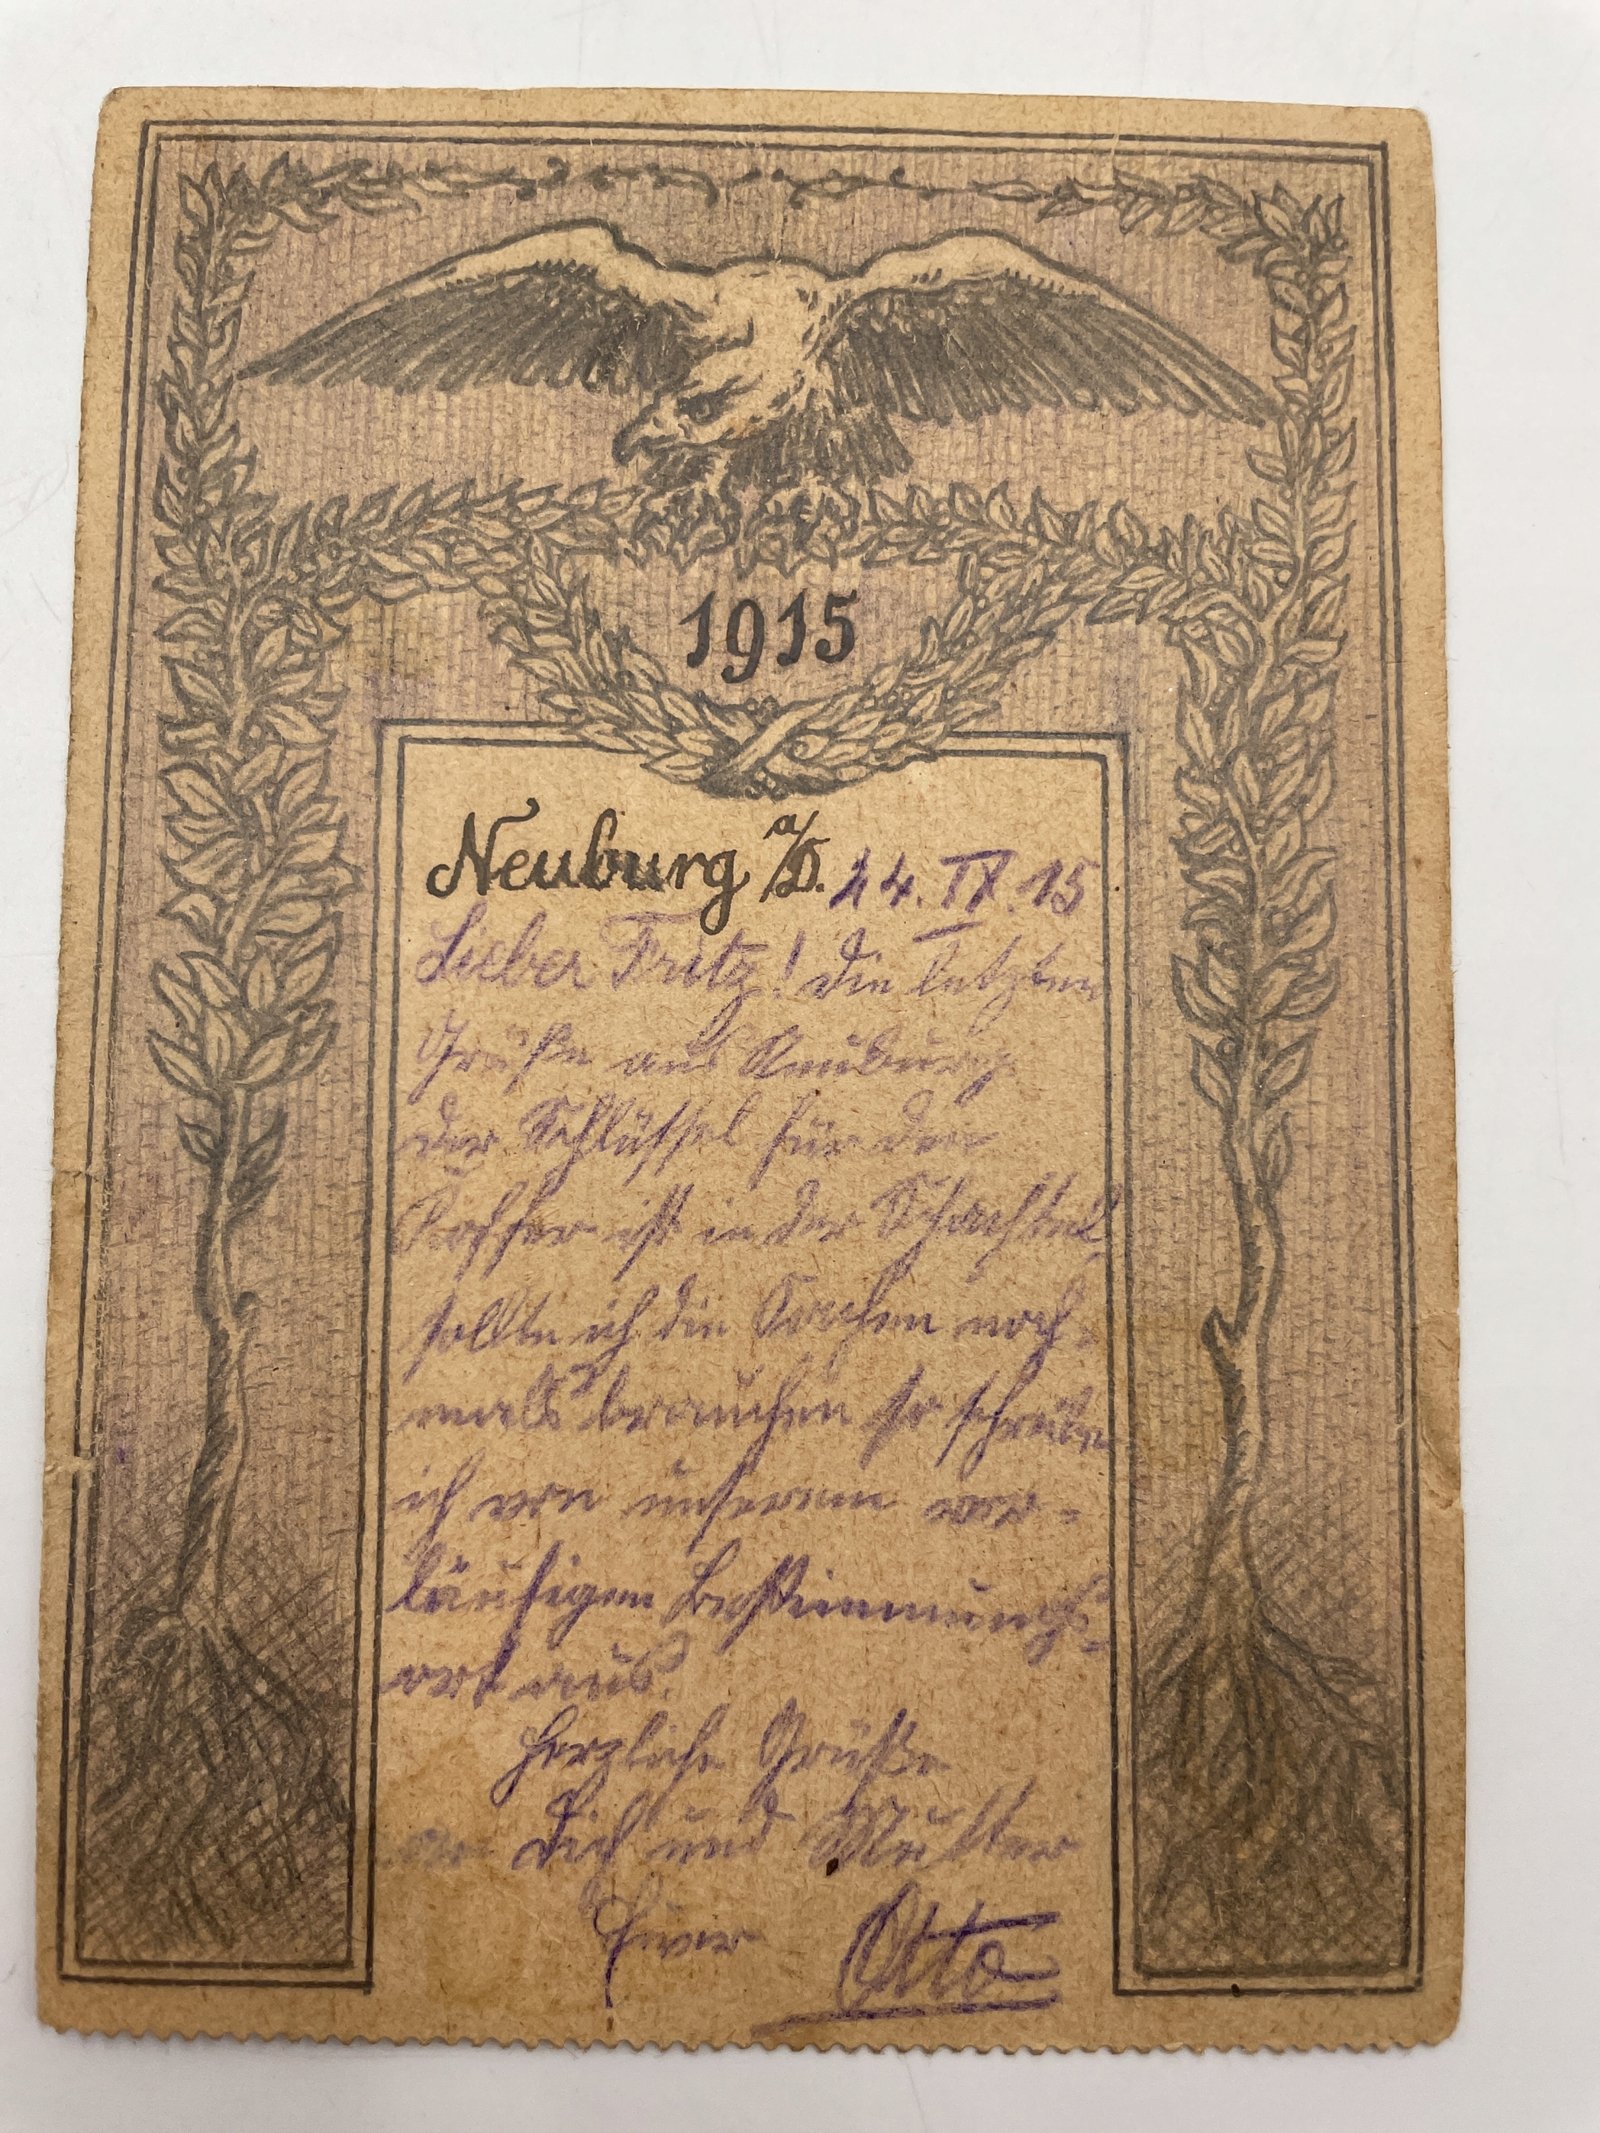 1915
Neuburg a/D. 24. IX. 15
Lieber Fritz! Die letzten
Grüße aus Neuburg
der Schlüssel für den
Koffer ist in der Schachtel,
sollte ich die Sachen noch-
mals brauchen so schreibe
ich von unserem vor-
läufigen Bestimmungs-
ort aus.
Herzliche Grüße
an Dich und Mutter
Euer Otto